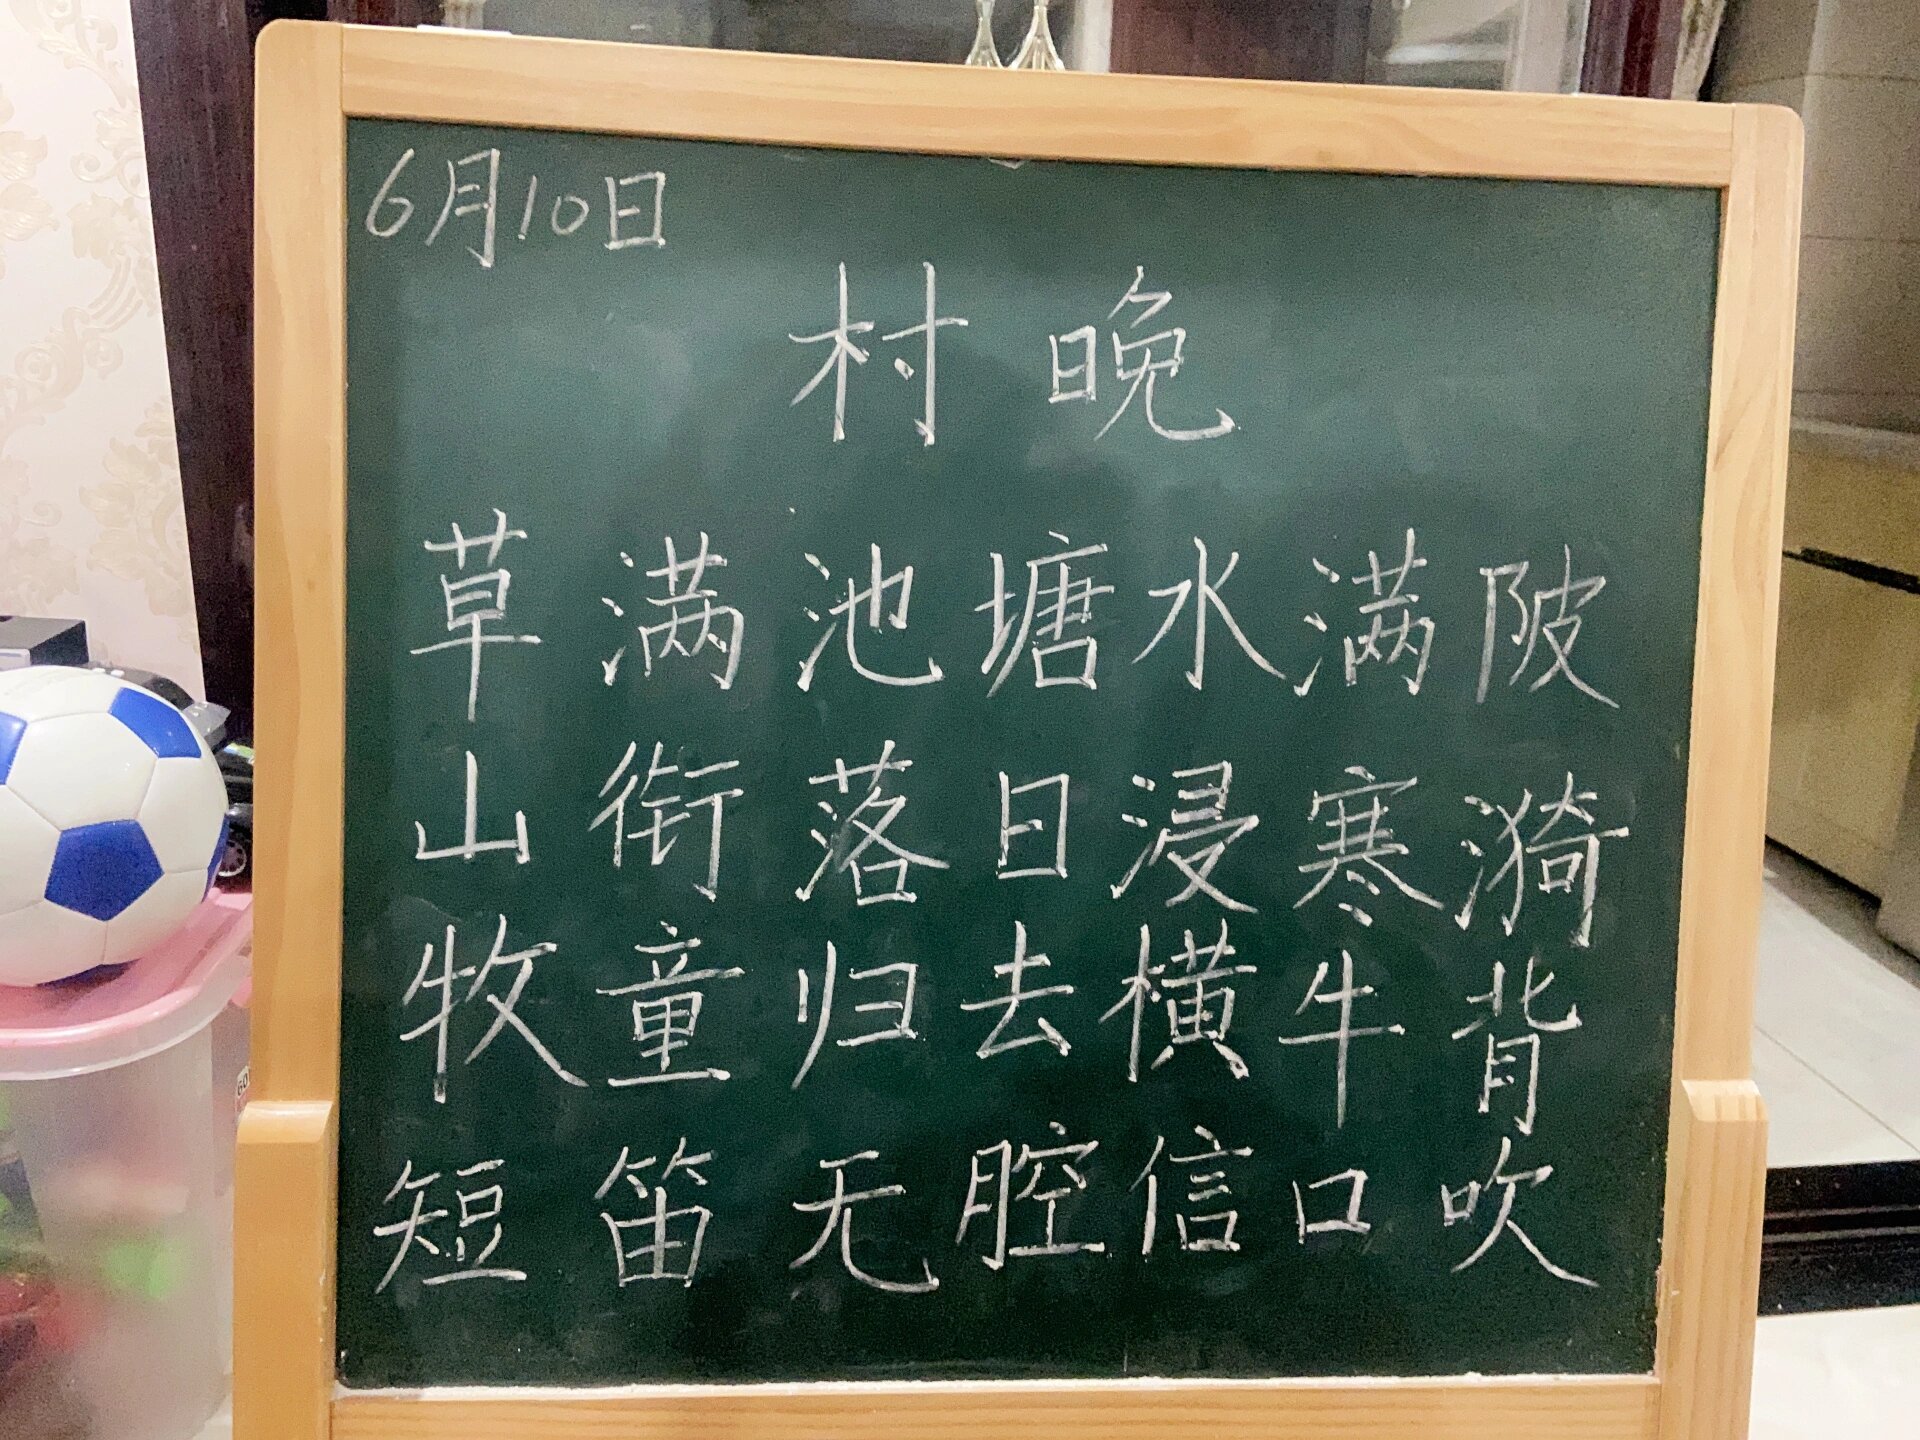 6月10日
村晚
草满池塘水满陂
山衔落日浸寒漪
牧童归去横牛背
短笛无腔信口吹